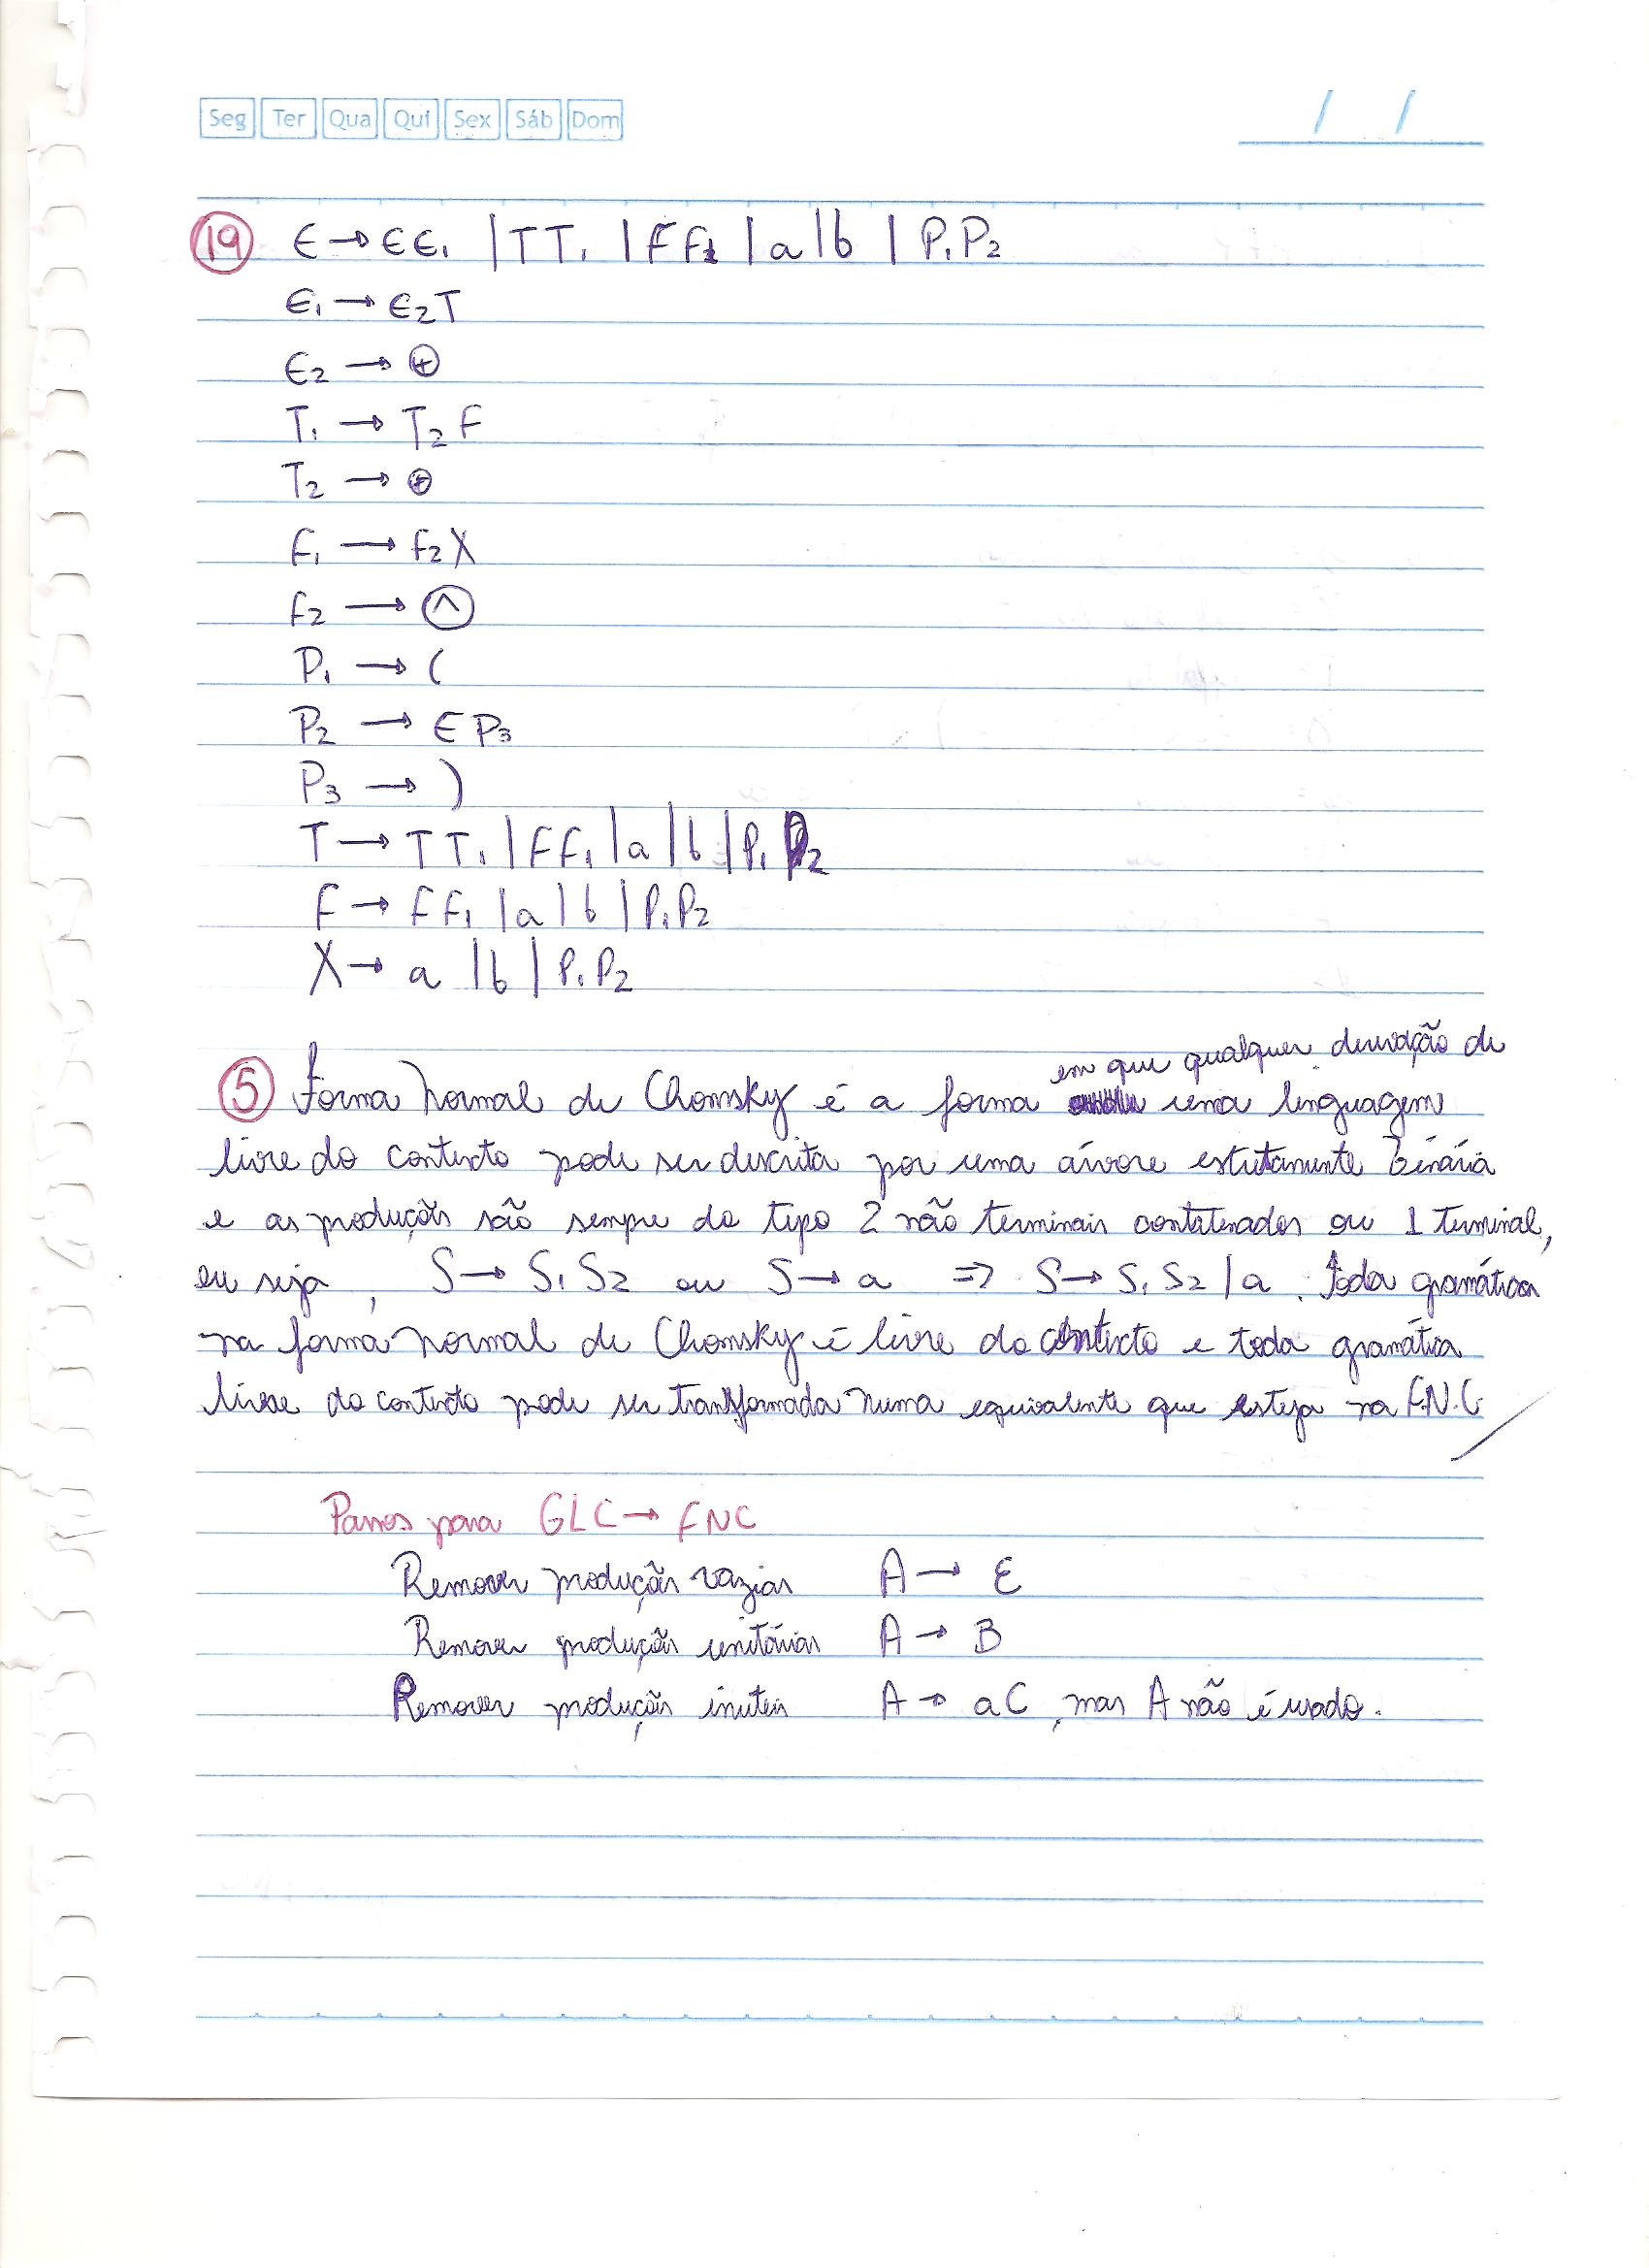 Seg Ter Qua Qui Sex Sáb Dom / /
19 E → EE₁ | TT₁ | FF₁ | a | b | P₁P₂
E₁ → E₂T
E₂ → ⊕
T₁ → T₂F
T₂ → ⊛
F₁ → F₂X
F₂ → Ⓐ
P₁ → (
P₂ → E P₃
P₃ → )
T → TT₁ | FF₁ | a | b | P₁P₂
F → FF₁ | a | b | P₁P₂
X → a | b | P₁P₂
em que qualquer derivação de
5 Forma Normal de Chomsky é a forma uma linguagem
livre do contexto pode ser descrita por uma árvore estritamente binária
e as produções são sempre do tipo 2 não terminais contatenados ou 1 terminal,
ou seja, S → S₁S₂ ou S → a => S → S₁S₂ | a. Toda gramática
na forma normal de Chomsky é livre do contexto e toda gramática
livre do contexto pode ser transformada numa equivalente que esteja na F.N.C
Passos para GLC → FNC
Remover produções vazias A → ε
Remover produções unitárias A → B
Remover produções inuteis A → aC, mas A não é usado.